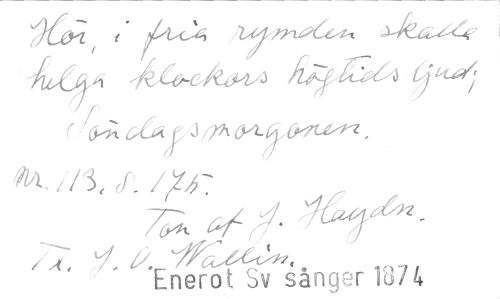 Hör, i fria rymden skalla
helga klockors högtids ljud;
Söndagsmorgonen.
nr. 113, s. 175.
Ton af J. Haydn.
Tx. J. O. Wallin.
Enerot Sv sånger 1874